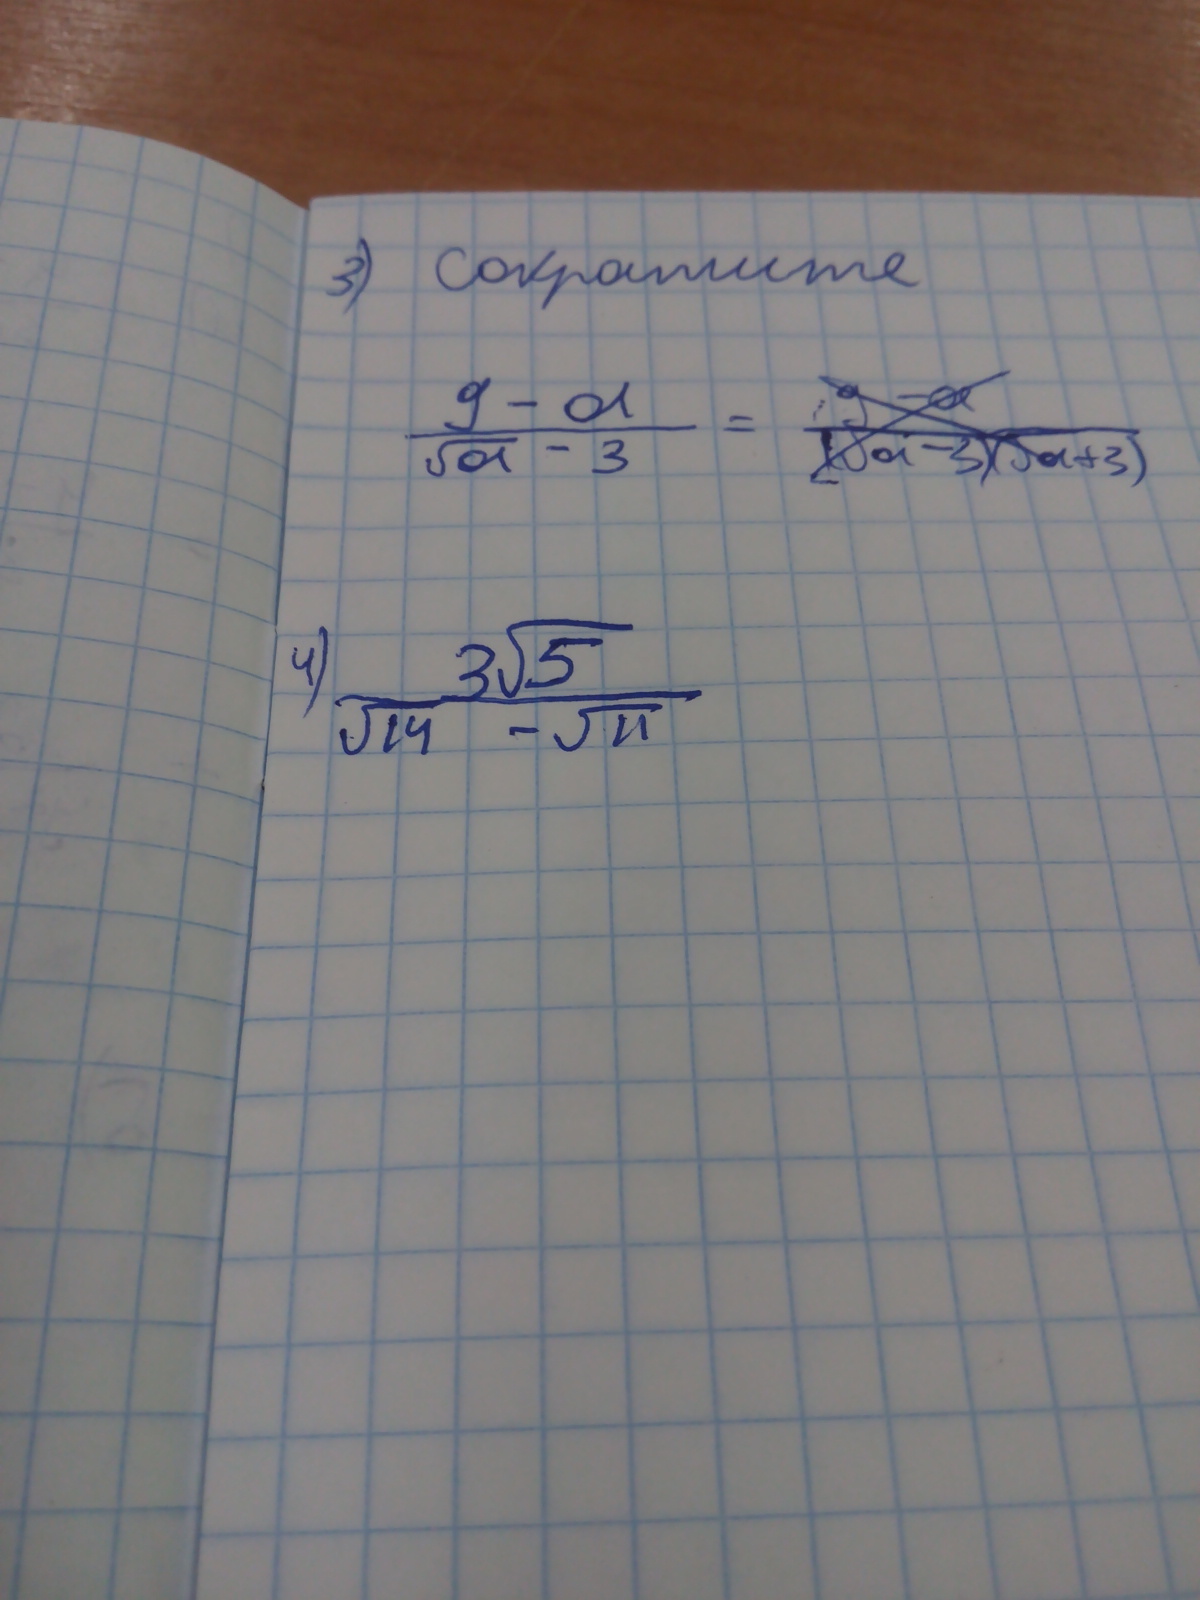 3) Сократите
9 - a / √a - 3 = 9 - a / (√a - 3)(√a + 3)
4) 3√5 / √14 - √11